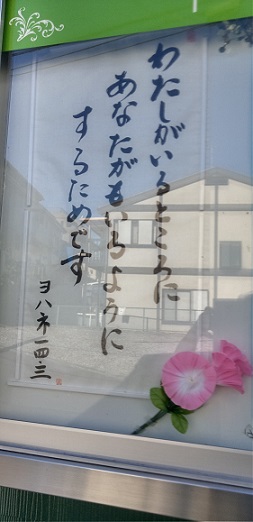 わたしがいるところに
あなたがもいるように
するためです
ヨハネ一四・三